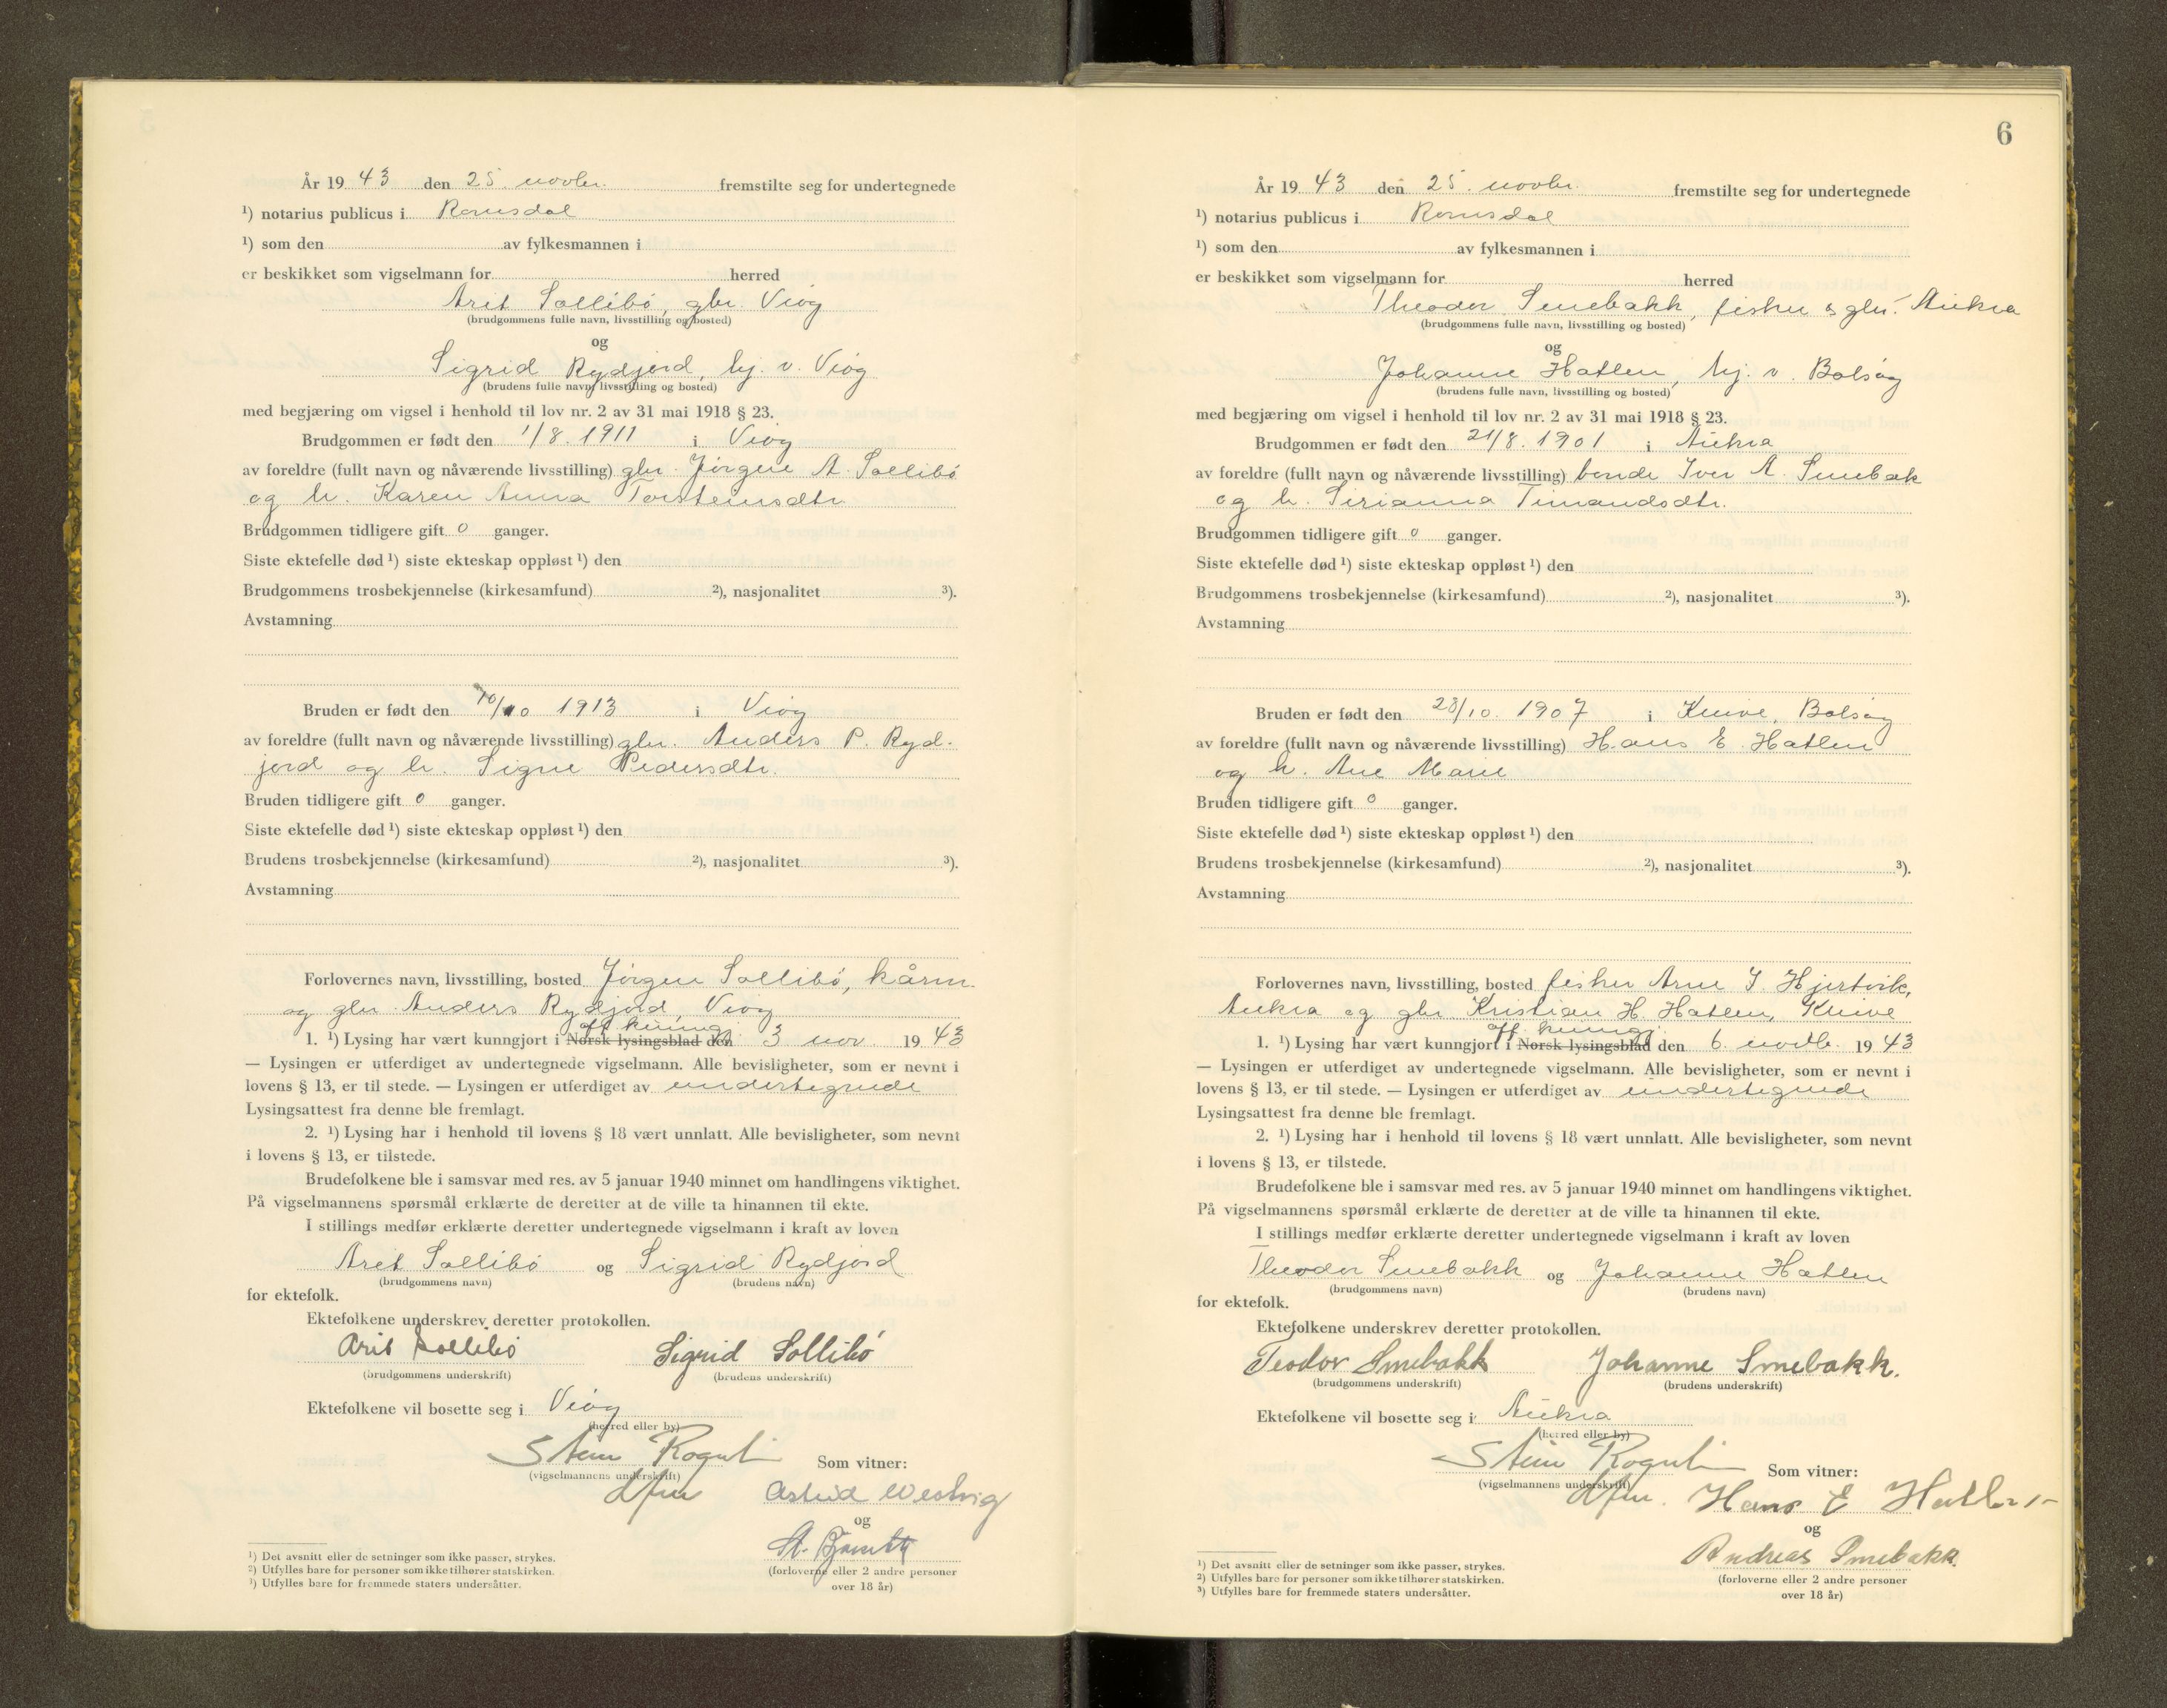 År 19 43 den 25. novbr. fremstilte seg for undertegnede
¹) notarius publicus i Romsdal
¹) som den av fylkesmannen i
er beskikket som vigselmann for herred
Arit Sollibö, gbr. Veöy
(brudgommens fulle navn, livsstilling og bosted)
og
Sigrid Rydjord, hj. v. Veöy
(brudens fulle navn, livsstilling og bosted)
med begjæring om vigsel i henhold til lov nr. 2 av 31 mai 1918 § 23.
Brudgommen er født den 1/8. 1911 i Veöy
av foreldre (fullt navn og nåværende livsstilling) gbr. Jörgen A. Sollibö
og h. Karen Anna Torsteinsdtr.
Brudgommen tidligere gift 0 ganger.
Siste ektefelle død ¹) siste ekteskap oppløst ¹) den
Brudgommens trosbekjennelse (kirkesamfund) ²), nasjonalitet ³).
Avstamning
Bruden er født den 10/10 1913 i Veöy
av foreldre (fullt navn og nåværende livsstilling) gbr. Anders P. Ryd-
jord og h. Signe Pedersdtr.
Bruden tidligere gift 0 ganger.
Siste ektefelle død ¹) siste ekteskap oppløst ¹) den
Brudens trosbekjennelse (kirkesamfund) ²), nasjonalitet ³).
Avstamning
Forlovernes navn, livsstilling, bosted Jörgen Sollibö, kårm.
og gbr. Anders Rydjord, Veöy
off. kunng.
1. ¹) Lysing har vært kunngjort i Norsk lysingsblad den 3 nov. 19 43
— Lysingen er utferdiget av undertegnede vigselmann. Alle bevisligheter, som er nevnt i
lovens § 13, er til stede. — Lysingen er utferdiget av undertegnede
Lysingsattest fra denne ble fremlagt.
2. ¹) Lysing har i henhold til lovens § 18 vært unnlatt. Alle bevisligheter, som nevnt
i lovens § 13, er tilstede.
Brudefolkene ble i samsvar med res. av 5 januar 1940 minnet om handlingens viktighet.
På vigselmannens spørsmål erklærte de deretter at de ville ta hinannen til ekte.
I stillings medfør erklærte deretter undertegnede vigselmann i kraft av loven
Arit Sollibö og Sigrid Rydjord
(brudgommens navn) (brudens navn)
for ektefolk.
Ektefolkene underskrev deretter protokollen.
Arit Sollibö Sigrid Sollibö
(brudgommens underskrift) (brudens underskrift)
Ektefolkene vil bosette seg i Veöy
(herred eller by)
Stein Rognli Som vitner:
(vigselmannens underskrift)
dfm Astrid
og
(forloverne eller 2 andre personer
over 18 år)
¹) Det avsnitt eller de setninger som ikke passer, strykes.
²) Utfylles bare for personer som ikke tilhører statskirken.
³) Utfylles bare for fremmede staters undersåtter.
6
År 19 43 den 25. novbr. fremstilte seg for undertegnede
¹) notarius publicus i Romsdal
¹) som den av fylkesmannen i
er beskikket som vigselmann for herred
Theodor Smebakk, fisker & gbr. Aukra
(brudgommens fulle navn, livsstilling og bosted)
og
Johanne Hatlen, hj. v. Bolsöy
(brudens fulle navn, livsstilling og bosted)
med begjæring om vigsel i henhold til lov nr. 2 av 31 mai 1918 § 23.
Brudgommen er født den 21/8. 1901 i Aukra
av foreldre (fullt navn og nåværende livsstilling) bonde Iver A. Smebak
og h. Serianna Timandsdtr.
Brudgommen tidligere gift 0 ganger.
Siste ektefelle død ¹) siste ekteskap oppløst ¹) den
Brudgommens trosbekjennelse (kirkesamfund) ²), nasjonalitet ³).
Avstamning
Bruden er født den 28/10. 1907 i Kleive, Bolsöy
av foreldre (fullt navn og nåværende livsstilling) Hans E. Hatlen
og h. Ane Marie
Bruden tidligere gift 0 ganger.
Siste ektefelle død ¹) siste ekteskap oppløst ¹) den
Brudens trosbekjennelse (kirkesamfund) ²), nasjonalitet ³).
Avstamning
Forlovernes navn, livsstilling, bosted fisker Arne I. Hjertvik,
Aukra og gbr. Kristian H. Hatlen, Kleive
off. kunngj.
1. ¹) Lysing har vært kunngjort i Norsk lysingsblad den 6. novbr. 19 43
— Lysingen er utferdiget av undertegnede vigselmann. Alle bevisligheter, som er nevnt i
lovens § 13, er til stede. — Lysingen er utferdiget av undertegnede
Lysingsattest fra denne ble fremlagt.
2. ¹) Lysing har i henhold til lovens § 18 vært unnlatt. Alle bevisligheter, som nevnt
i lovens § 13, er tilstede.
Brudefolkene ble i samsvar med res. av 5 januar 1940 minnet om handlingens viktighet.
På vigselmannens spørsmål erklærte de deretter at de ville ta hinannen til ekte.
I stillings medfør erklærte deretter undertegnede vigselmann i kraft av loven
Theodor Smebakk og Johanne Hatlen
(brudgommens navn) (brudens navn)
for ektefolk.
Ektefolkene underskrev deretter protokollen.
Teodor Smebakk Johanne Smebakk.
(brudgommens underskrift) (brudens underskrift)
Ektefolkene vil bosette seg i Aukra
(herred eller by)
Stein Rognli Som vitner:
(vigselmannens underskrift)
dfm. Hans E Hatlen
og
Andreas Smebakk.
(forloverne eller 2 andre personer
over 18 år)
¹) Det avsnitt eller de setninger som ikke passer, strykes.
²) Utfylles bare for personer som ikke tilhører statskirken.
³) Utfylles bare for fremmede staters undersåtter.